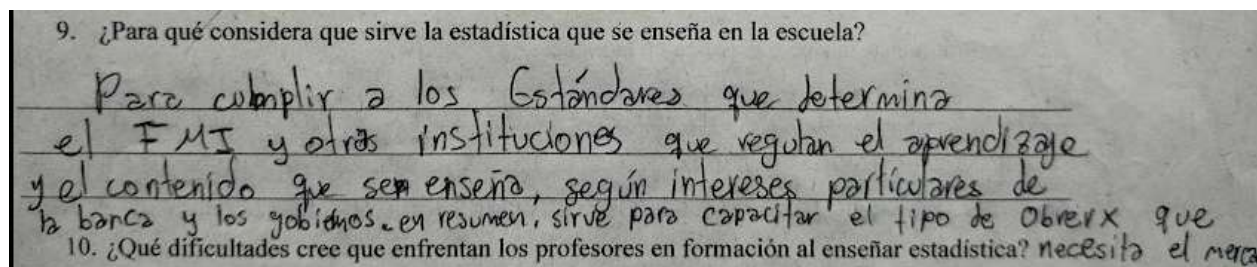 9. ¿Para qué considera que sirve la estadística que se enseña en la escuela?
Para cumplir a los Estándares que determina
el FMI y otras instituciones que regulan el aprendizaje
y el contenido que se enseña, según intereses particulares de
la banca y los gobiernos. en resumen, sirve para capacitar el tipo de obrerx que
10. ¿Qué dificultades cree que enfrentan los profesores en formación al enseñar estadística? necesita el merca